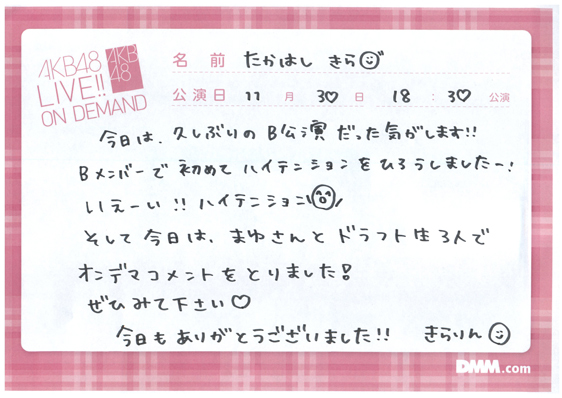 AKB48
LIVE!!
ON DEMAND
AKB
48
名前 たかはし きら
公演日 11月 30日 18:30 公演
今日は、久しぶりのB公演だった気がします!!
Bメンバーで初めてハイテンションをひろうしましたー!
いえーい!!ハイテンション
そして今日は、まゆさんとドラフト生3人で
オンデマコメントをとりました!
ぜひみて下さい♡
今日もありがとうございました!! きらりん
DMM.com